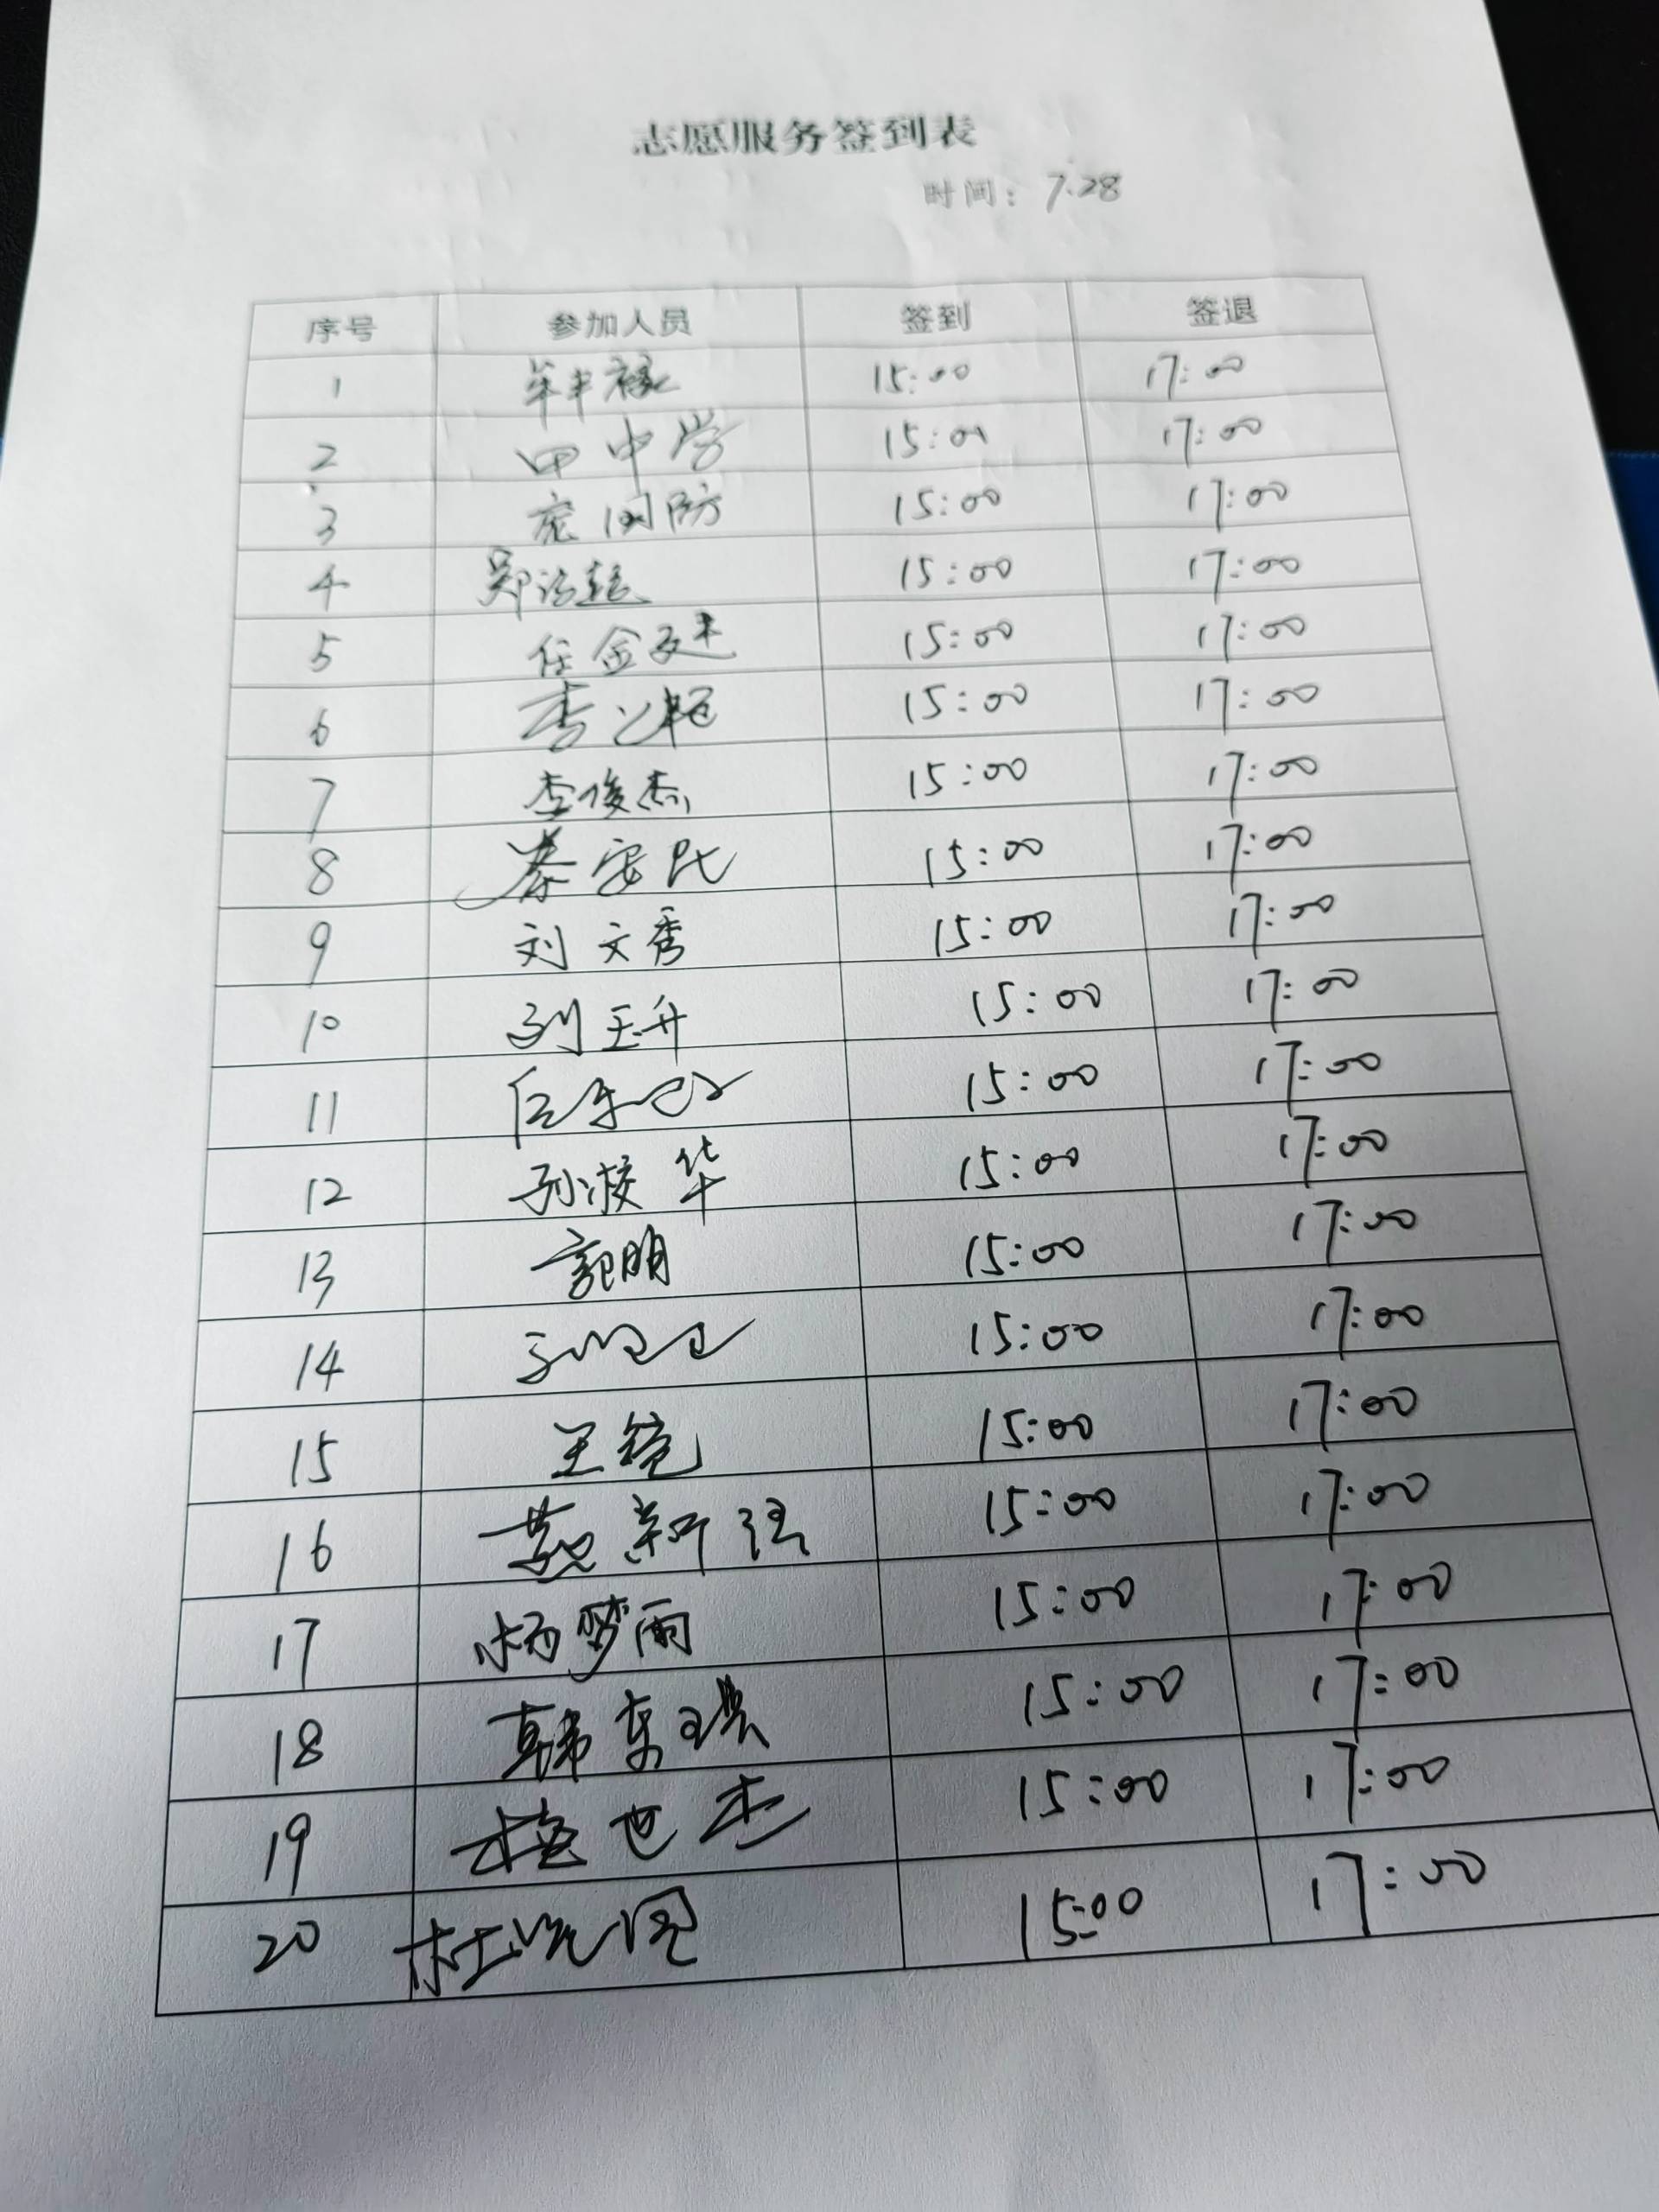 志愿服务签到表
时间：7.28
序号 参加人员 签到 签退
1 15:00 17:00
2 田中学 15:00 17:00
3 庞国防 15:00 17:00
4 郑 15:00 17:00
5 任金廷 15:00 17:00
6 李 15:00 17:00
7 李俊杰 15:00 17:00
8 秦安民 15:00 17:00
9 刘文秀 15:00 17:00
10 刘玉升 15:00 17:00
11 15:00 17:00
12 孙淑华 15:00 17:00
13 郭明 15:00 17:00
14 15:00 17:00
15 王锐 15:00 17:00
16 新强 15:00 17:00
17 杨梦雨 15:00 17:00
18 韩东琪 15:00 17:00
19 梅世杰 15:00 17:00
20 杜 15:00 17:00